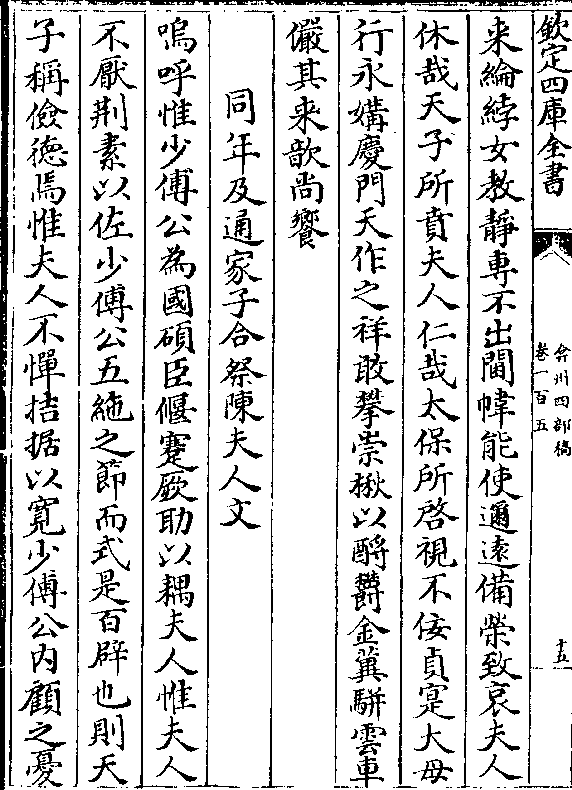 欽定四庫全書
弇州四部稿
卷一百五
十五
来綸綍女教靜專不出閫幃能使邇遠備榮致哀夫人
休哉天子所賁夫人仁哉太保所啓視不佞貞寔大母
行永媾慶門天作之祥敢攀崇楸以酹鬱金蓂駢雲車
儼其来歆尚饗
同年及通家子合祭陳夫人文
嗚呼惟少傅公為國碩臣偃蹇厥助以耦夫人惟夫人
不厭荆素以佐少傅公五紽之節而式是百辟也則天
子稱儉徳焉惟夫人不憚拮据以寛少傅公内顧之憂